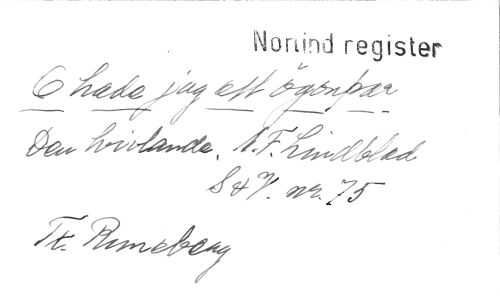 Norlind register
O hade jag ett ögonpar
Den hvilande. N.F. Lindblad
S & V. nr. 75
Tr. Runeberg